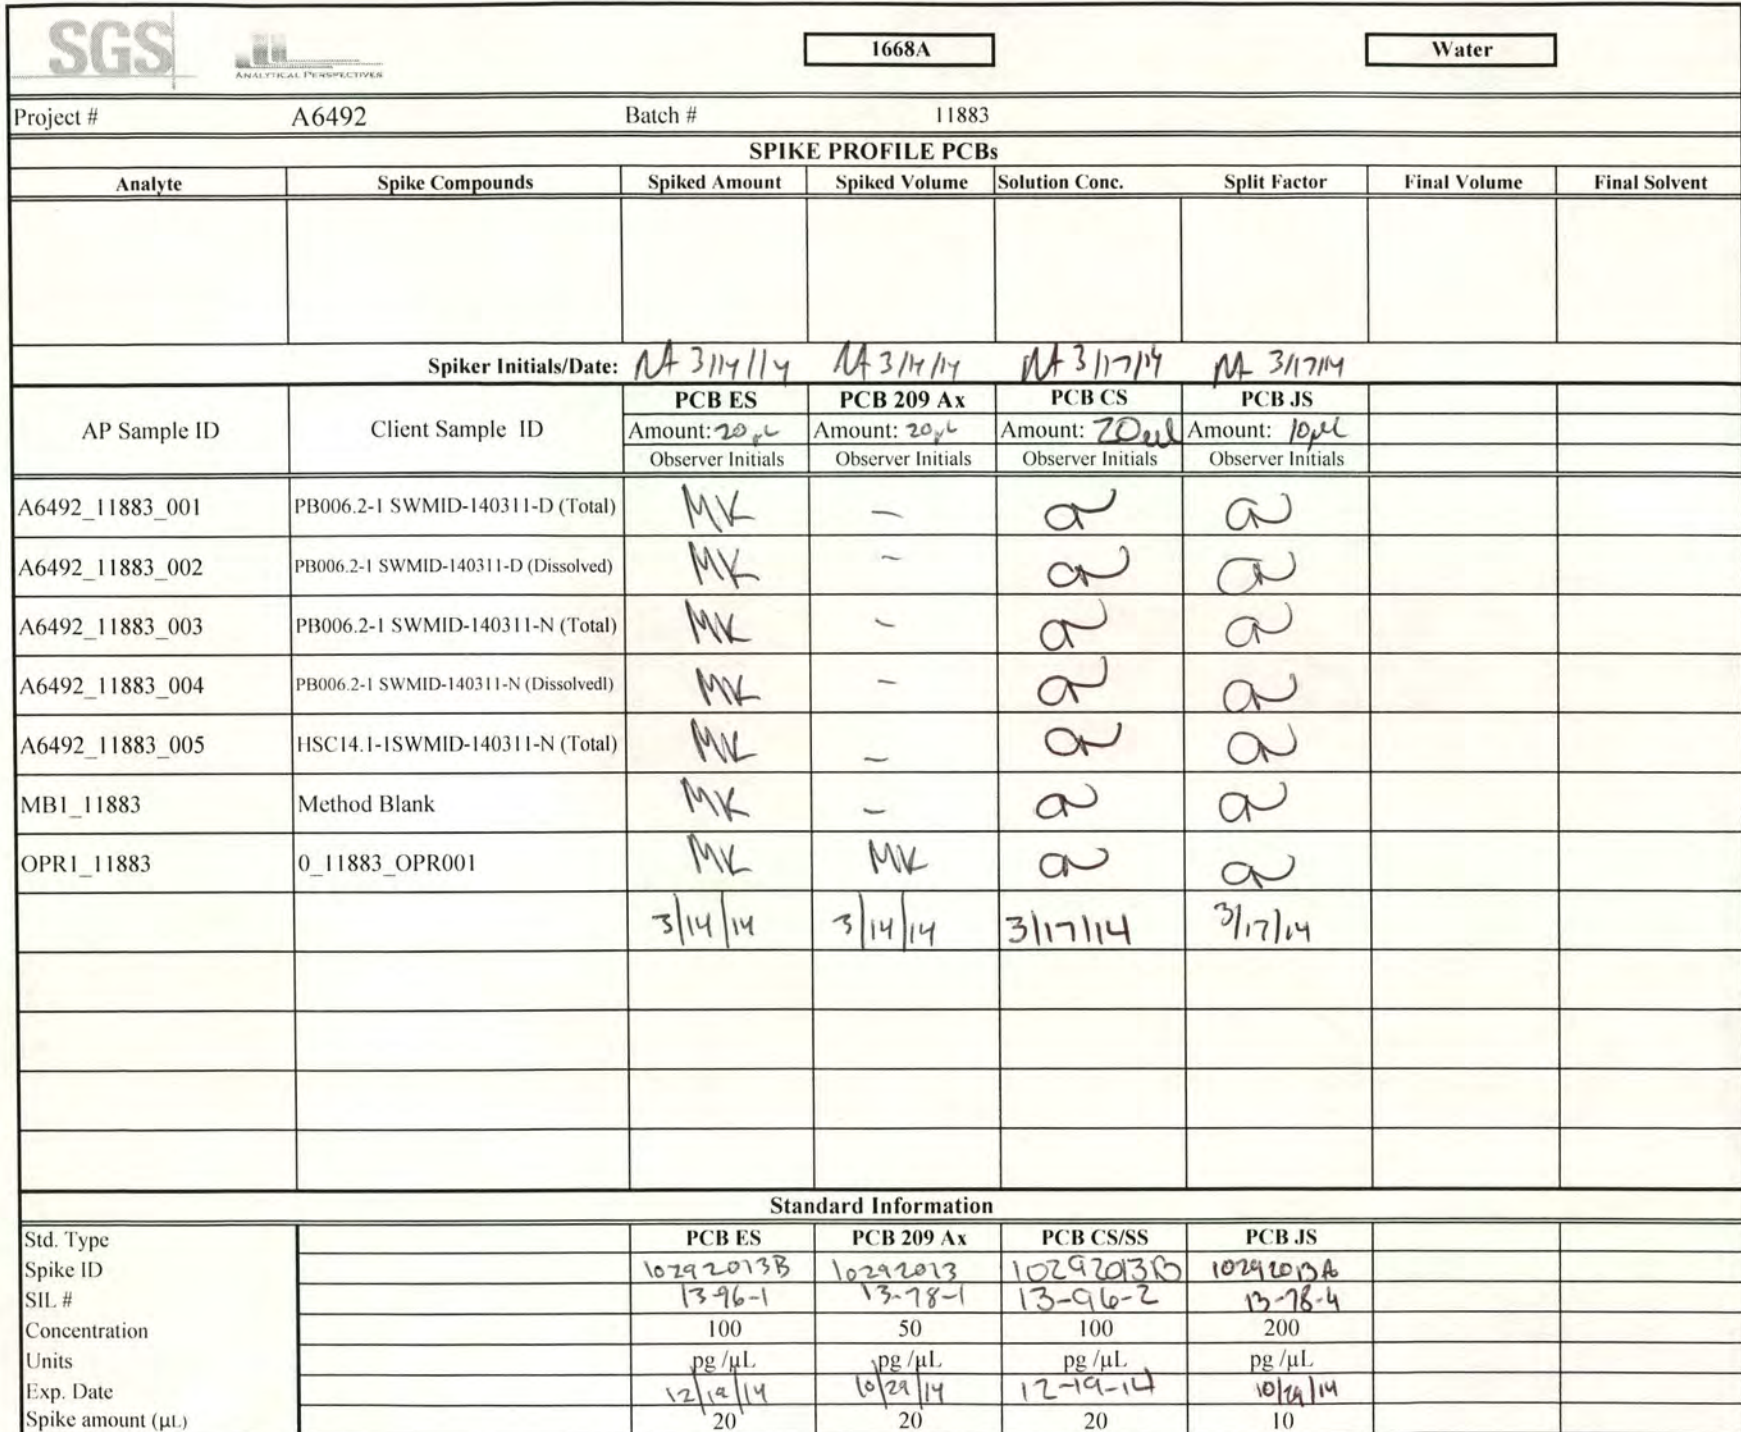 SGS ANALYTICAL PERSPECTIVES 1668A Water
Project # A6492 Batch # 11883
SPIKE PROFILE PCBs
Analyte Spike Compounds Spiked Amount Spiked Volume Solution Conc. Split Factor Final Volume Final Solvent
Spiker Initials/Date: 3/14/14 3/14/14 3/17/14 3/17/14
PCB ES PCB 209 Ax PCB CS PCB JS
AP Sample ID Client Sample ID Amount: 20µL Amount: 20µL Amount: 20µl Amount: 10µl
Observer Initials Observer Initials Observer Initials Observer Initials
A6492_11883_001 PB006.2-1 SWMID-140311-D (Total) MK -
A6492_11883_002 PB006.2-1 SWMID-140311-D (Dissolved) MK -
A6492_11883_003 PB006.2-1 SWMID-140311-N (Total) MK -
A6492_11883_004 PB006.2-1 SWMID-140311-N (Dissolvedl) MK -
A6492_11883_005 HSC14.1-1SWMID-140311-N (Total) MK -
MB1_11883 Method Blank MK -
OPR1_11883 0_11883_OPR001 MK MK
3/14/14 3/14/14 3/17/14 3/17/14
Standard Information
Std. Type PCB ES PCB 209 Ax PCB CS/SS PCB JS
Spike ID 10292013B 10292013 10292013B 10292013A
SIL # 13-96-1 13-78-1 13-96-2 13-78-4
Concentration 100 50 100 200
Units pg /µL pg /µL pg /µL pg /µL
Exp. Date 12/19/14 10/29/14 12-19-14 10/29/14
Spike amount (µL) 20 20 20 10